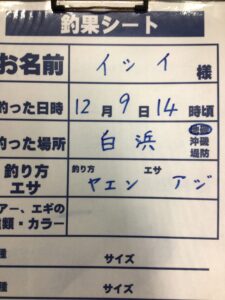 釣果シート
お名前 イツイ 様
釣った日時 12月9日14時頃
釣った場所 白浜 沖磯 堤防
釣り方 エサ 釣り方 ヤエン エサ アジ
アー、エギの
種類・カラー
種 サイズ
種 サイズ